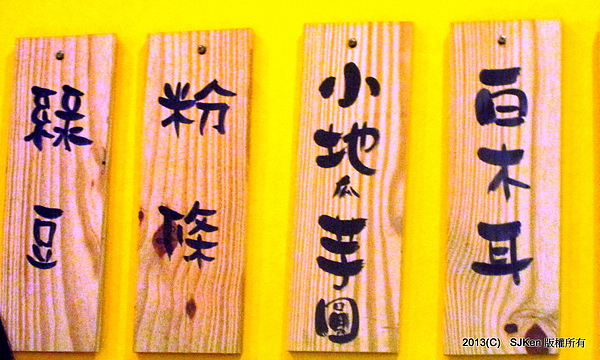 綠豆
粉條
小地瓜芋圓
白木耳
2013(C) SJKen 版權所有